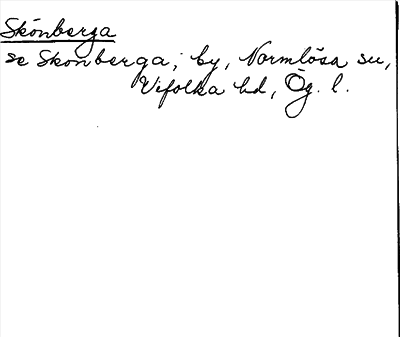 Skönberga
se Skonberga; by, Normlösa sn,
Vifolka hd, Ög. l.